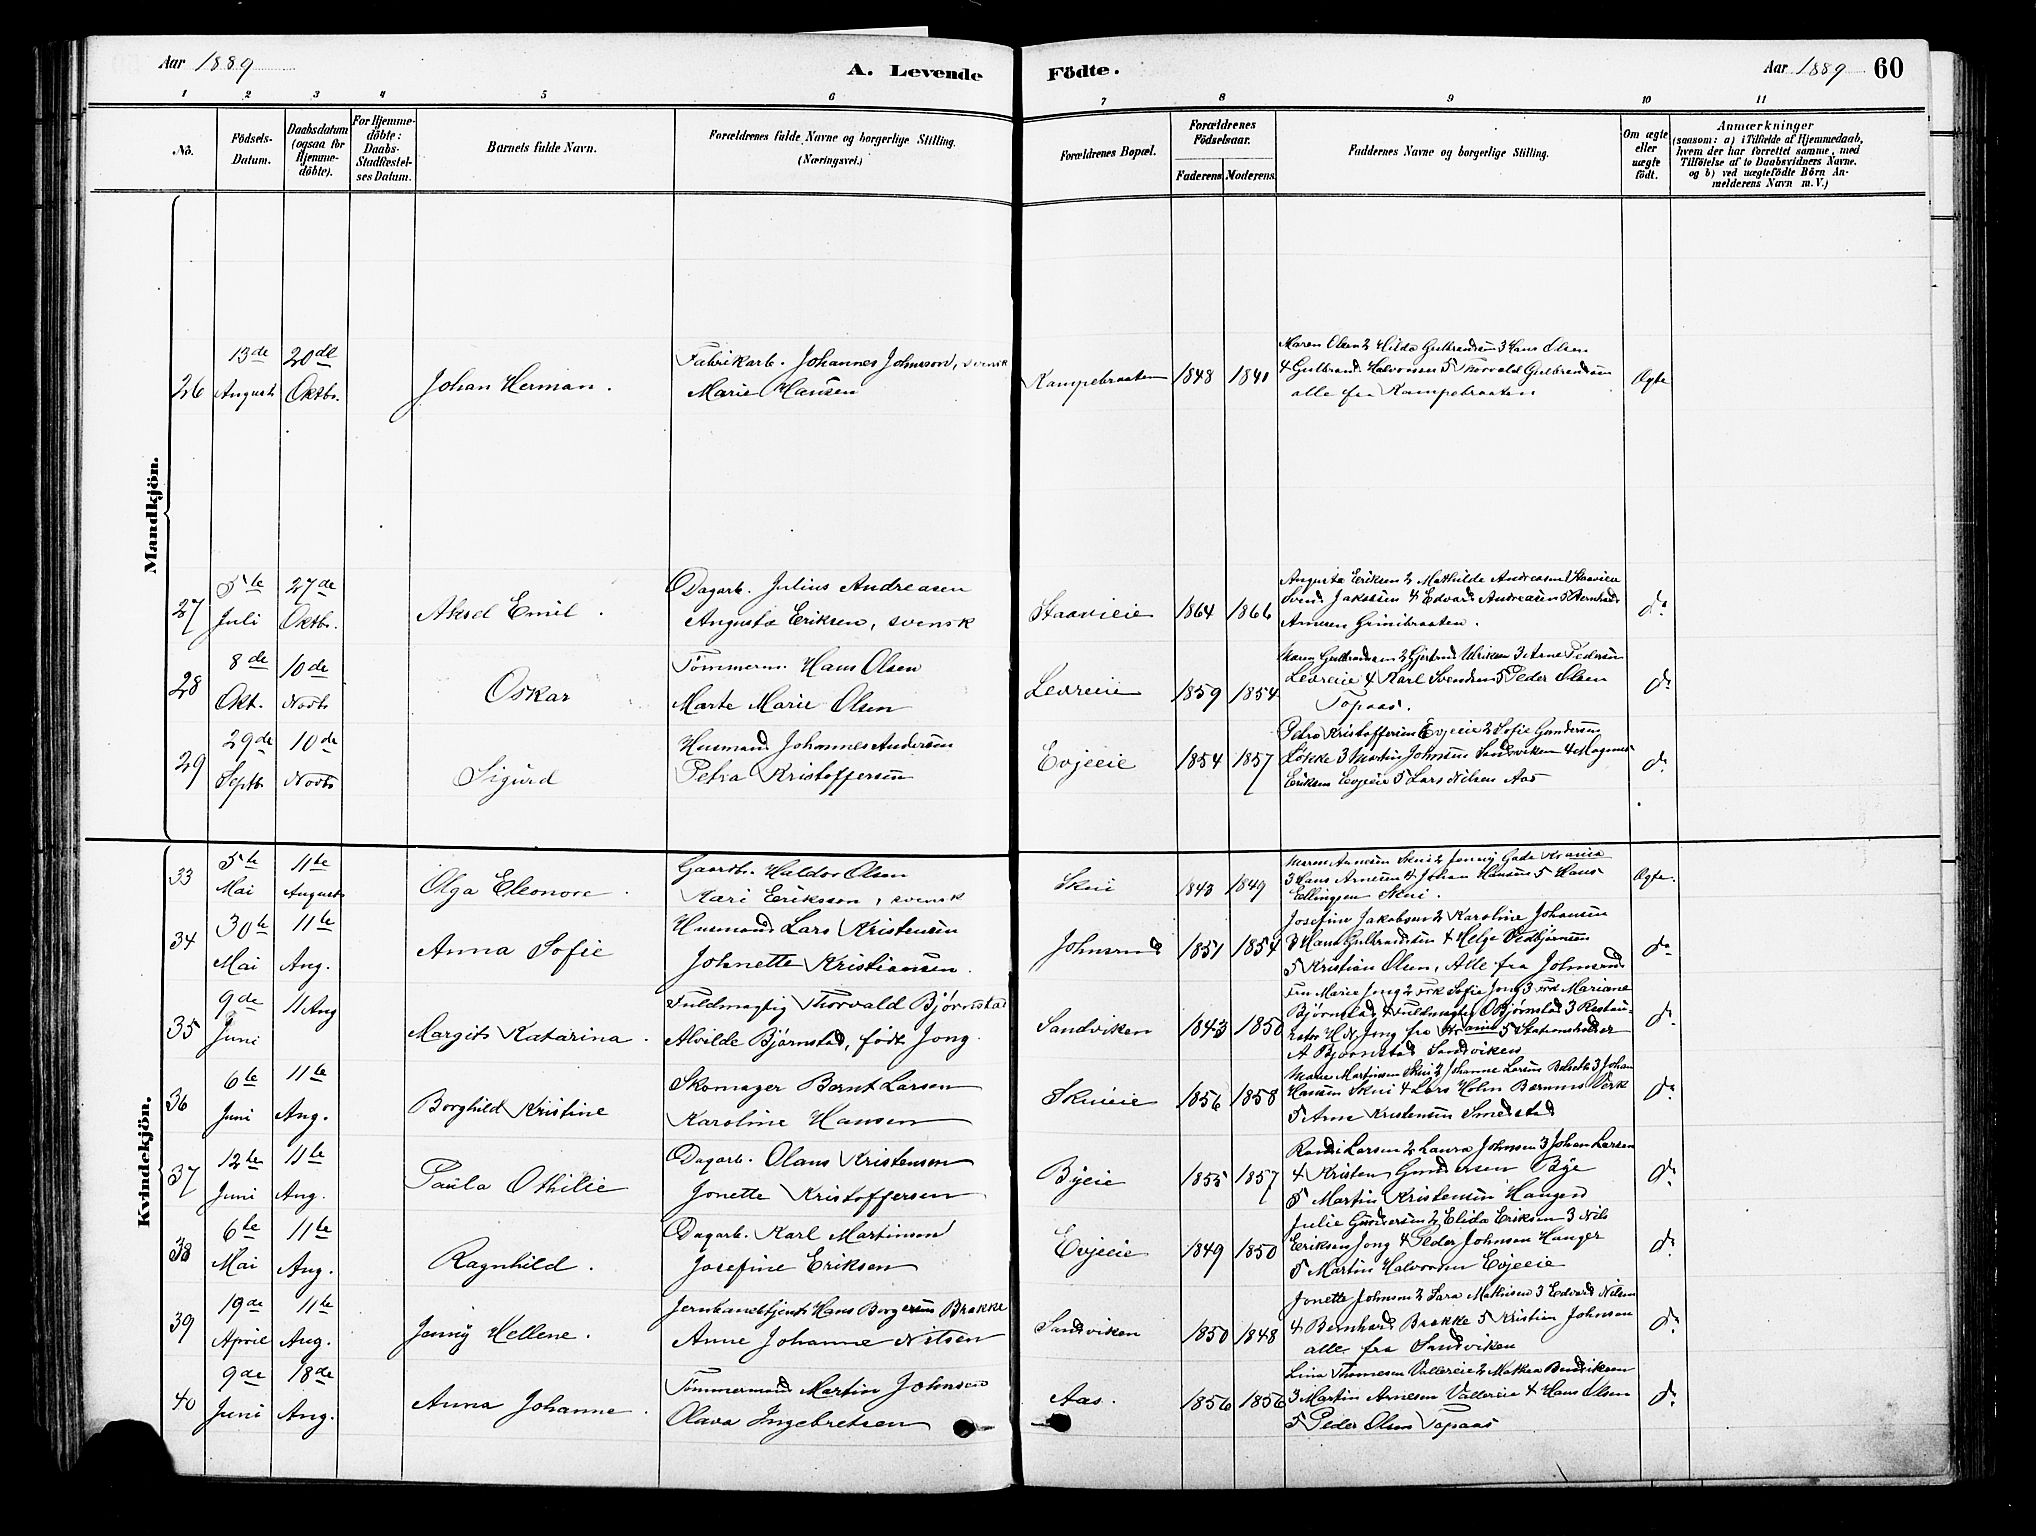 Aar 1889
A. Levende
Fødte.
Aar 1889 60
1 2 3 4 5 6 7 8 9 10 11
No.
Fødsels-
Datum.
Daabsdatum
(ogsaa for
Hjemme-
döbte).
For Hjemme-
döbte:
Daabs-
Stadfæstel-
ses Datum.
Barnets fulde Navn.
Forældrenes fulde Navne og borgerlige Stilling.
(Næringsvei.)
Forældrenes Bopæl.
Forældrenes
Fødselsaar.
Faderens Moderens
Faddernes Navne og borgerlige Stilling.
Om ægte
eller
uægte
født.
Anmærkninger
(saasom: a) i Tilfælde af Hjemmedaab,
hvem der har forrettet samme, med
Tilföielse af to Daabsvidners Navne.
og b) ved uægtefødte Börn An-
melderens Navn m.V.)
Mandkjön.
26
13de
August
20de
Oktbr.
Johan Herman.
Fabrikarb. Johannes Johnsson, svensk
Marie Hansen
Kampebraaten
1848 1840
Maren Olsen 2 Hilda Gulbrandsen 3 Hans Olsen
4 Gulbrand Halvorsen 5 Thorvald Gulbrandsen
alle fra Kampebraaten
Ægte
27
5te
Juli
27de
Oktbr.
Aksel Emil.
Dagarb. Julius Andreasen
Augusta Eriksen, svensk
Staavieie
1864 1866
Augusta Eriksen 2 Mathilde Andreasen Staavieie
Svend Jakobsen 4 Edvard Andreasen 5 Bernhard
Arnesen Grinibraaten.
do.
28
8de
Okt.
10de
Novbr
Oskar
Tømmerm. Hans Olsen
Marte Marie Olsen
Levreeie
1859 1854
Maren Gulbrandsen 2 Gjertrud Ulriksen 3 Arne Pedersen
Levreeie 4 Karl Svendsen 5 Peder Olsen
Topaas.
do.
29
29de
Septb.
10de
Novbr
Sigurd
Husmand Johannes Andersen
Petra Kristoffersen
Evjeeie
1854 1857
Petra Kristoffersen Evjeeie 2 Sofie Gundersen
Løkke 3 Martin Johnsen Sandviken 4 Magnus
Eriksen Evjeeie 5 Lars Nilsen Aas
do.
Kvindekjön.
33
5te
Mai
11te
August
Olga Eleonore.
Gaardbr. Haldor Olsen
Kari Eriksson, svensk
Skui
1843 1849
Maren Arnesen Skui 2 Jenny Gade Krania
3 Hans Arnesen 4 Johan Hansen 5 Hans
Ellingsen Skui.
Ægte.
34
30te
Mai
11te
Aug.
Anna Sofie
Husmand Lars Kristensen
Johnette Kristiansen.
Johnsrud
1851 1854
Josefine Jakobsen 2 Karoline Johansen
3 Hans Gulbrandsen 4 Helge Vedbjørnsen
5 Kristian Olsen, Alle fra Johnsrud
do.
35
9de
Juni
11 Aug
Margit Katarina.
Fuldmægtig Thorvald Bjørnstad
Alvilde Bjørnstad, født Jong.
Sandviken
1843 1850
Fru Marie Jong 2 Frk Sofie Jong 3 Frk Mariane
Bjørnstad 4 Fuldmægtig O Bjørnstad 3 Restau-
ratør H N Jong fra Krania 5 Stationsholder
A Bjørnstad Sandviken
do.
36
6te
Juni
11te
Aug.
Borghild Kristine
Skomager Bernt Larsen
Karoline Hansen
Skuieie
1856 1858
Marie Martinsen Skui 2 Johanne Larsen 3 Johan
Hansen Skui 4 Lars Holm Bærums Værk
5 Arne Kristensen Smedstad
do.
37
12te
Juni
11te
Aug.
Paula Othilie
Dagarb. Olaus Kristensen
Jonette Kristoffersen
Byeie
1855 1857
Randi Larsen 2 Laura Johnsen 3 Johan Larsen
4 Kristen Gundersen Bye
5 Martin Kristensen Haugen
do.
38
6te
Mai
11te
Aug.
Ragnhild.
Dagarb. Karl Martinsen
Josefine Eriksen
Evjeeie
1849 1850
Julie Gundersen 2 Elida Eriksen 3 Nils
Eriksen Jong 4 Peder Johnsen Hauger
5 Martin Halvorsen Evjeeie
do.
39
19de
April
11te
Aug.
Jenny Hellene.
Jernbanebetjent Hans Borgersen Brække
Anne Johanne Nilsen
Sandviken
1850 1848
Jonette Johnsen 2 Sara Mathisen 3 Edvard Nilsen
4 Bernhard Brække 5 Kristian Johnsen
alle fra Sandviken
do.
40
9de
Juni
18de
Aug.
Anna Johanne.
Tømmermand Martin Johnsen
Olava Ingebretsen
Aas.
1856 1856
Lina Thomesen Vallereie 2 Mathea Bendiksen
3 Martin Arnesen Vallereie 4 Hans Olsen
5 Peder Olsen Topaas
do.